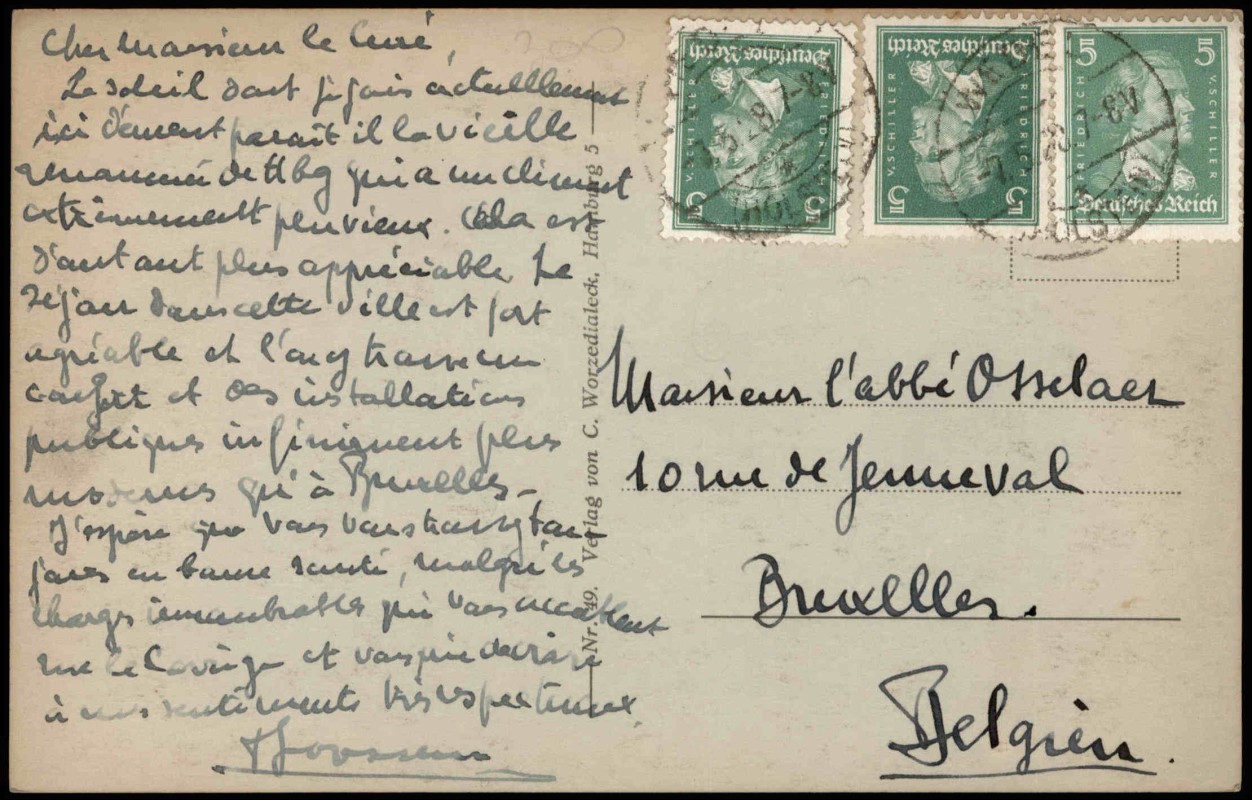 Cher Monsieur le Curé,
Le soleil dont je jouis actuellement
ici dément paraît il la vieille
renommée de Hbg qui a un climat
extrêmement pluvieux. Cela est
d'autant plus appréciable. Le
séjour dans cette ville est fort
agréable et l'on y trouve un
confort et des installations
publiques infiniment plus
modernes qu'à Bruxelles.
J'espère que vous vous trouvez tou-
jours en bonne santé, malgré les
charges innombrables qui vous accablent
et vous prie de croire
à mes sentiments très respectueux.
Nr. 49. Verlag von C. Worzedialeck, Hamburg 5
Deutsches Reich
FRIEDRICH
V. SCHILLER
5 5
Deutsches Reich
FRIEDRICH
V. SCHILLER
5 5
5 5
FRIEDRICH
V. SCHILLER
Deutsches Reich
Monsieur l'abbé Osselaer
10 rue de Jenneval
Bruxelles.
Belgien.